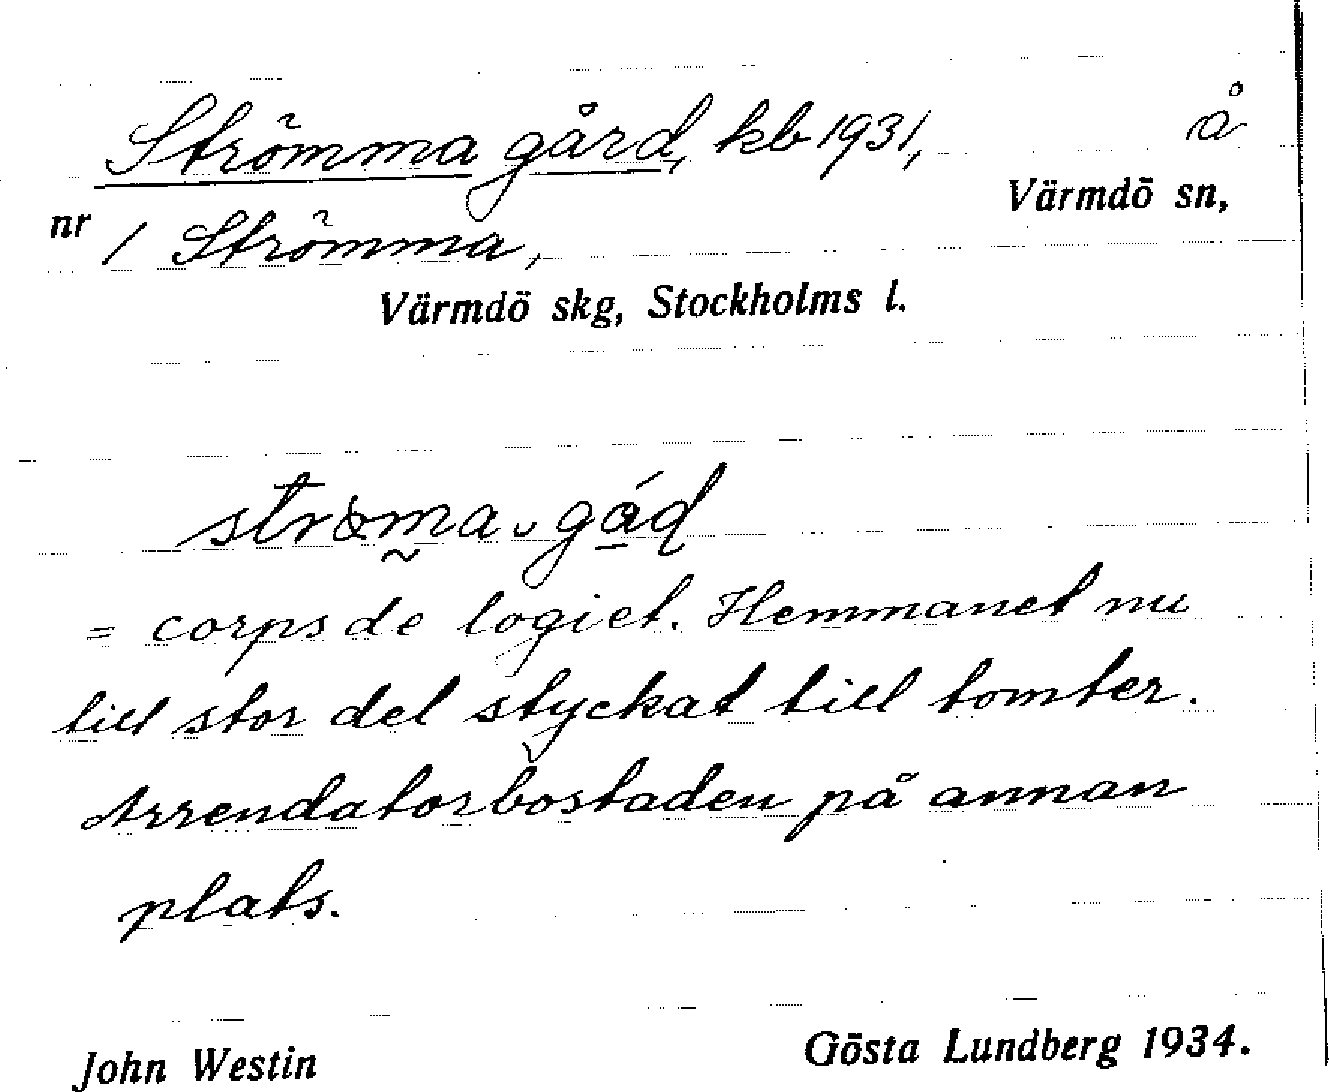 Strömma gård, kb 1931, å
Värmdö sn,
nr 1 Strömma,
Värmdö skg, Stockholms l.
= corps de logiet. Hemmanet nu
till stor del styckat till tomter.
Arrendatorbostaden på annan
plats.
John Westin Gösta Lundberg 1934.